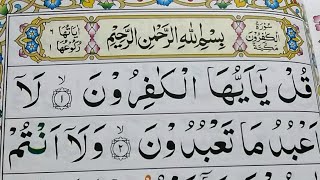 سُوْرَةُ الْكٰفِرُوْنَ مَكِّيَّةٌ
بِسْمِ اللّٰهِ الرَّحْمٰنِ الرَّحِيْمِ
اٰيَاتُهَا ٦ رُكُوْعُهَا ١
قُلْ يٰٓاَيُّهَا الْكٰفِرُوْنَ ۙ﴿١﴾ لَاۤ
اَعْبُدُ مَا تَعْبُدُوْنَ ۙ﴿٢﴾ وَلَاۤ اَنْتُمْ